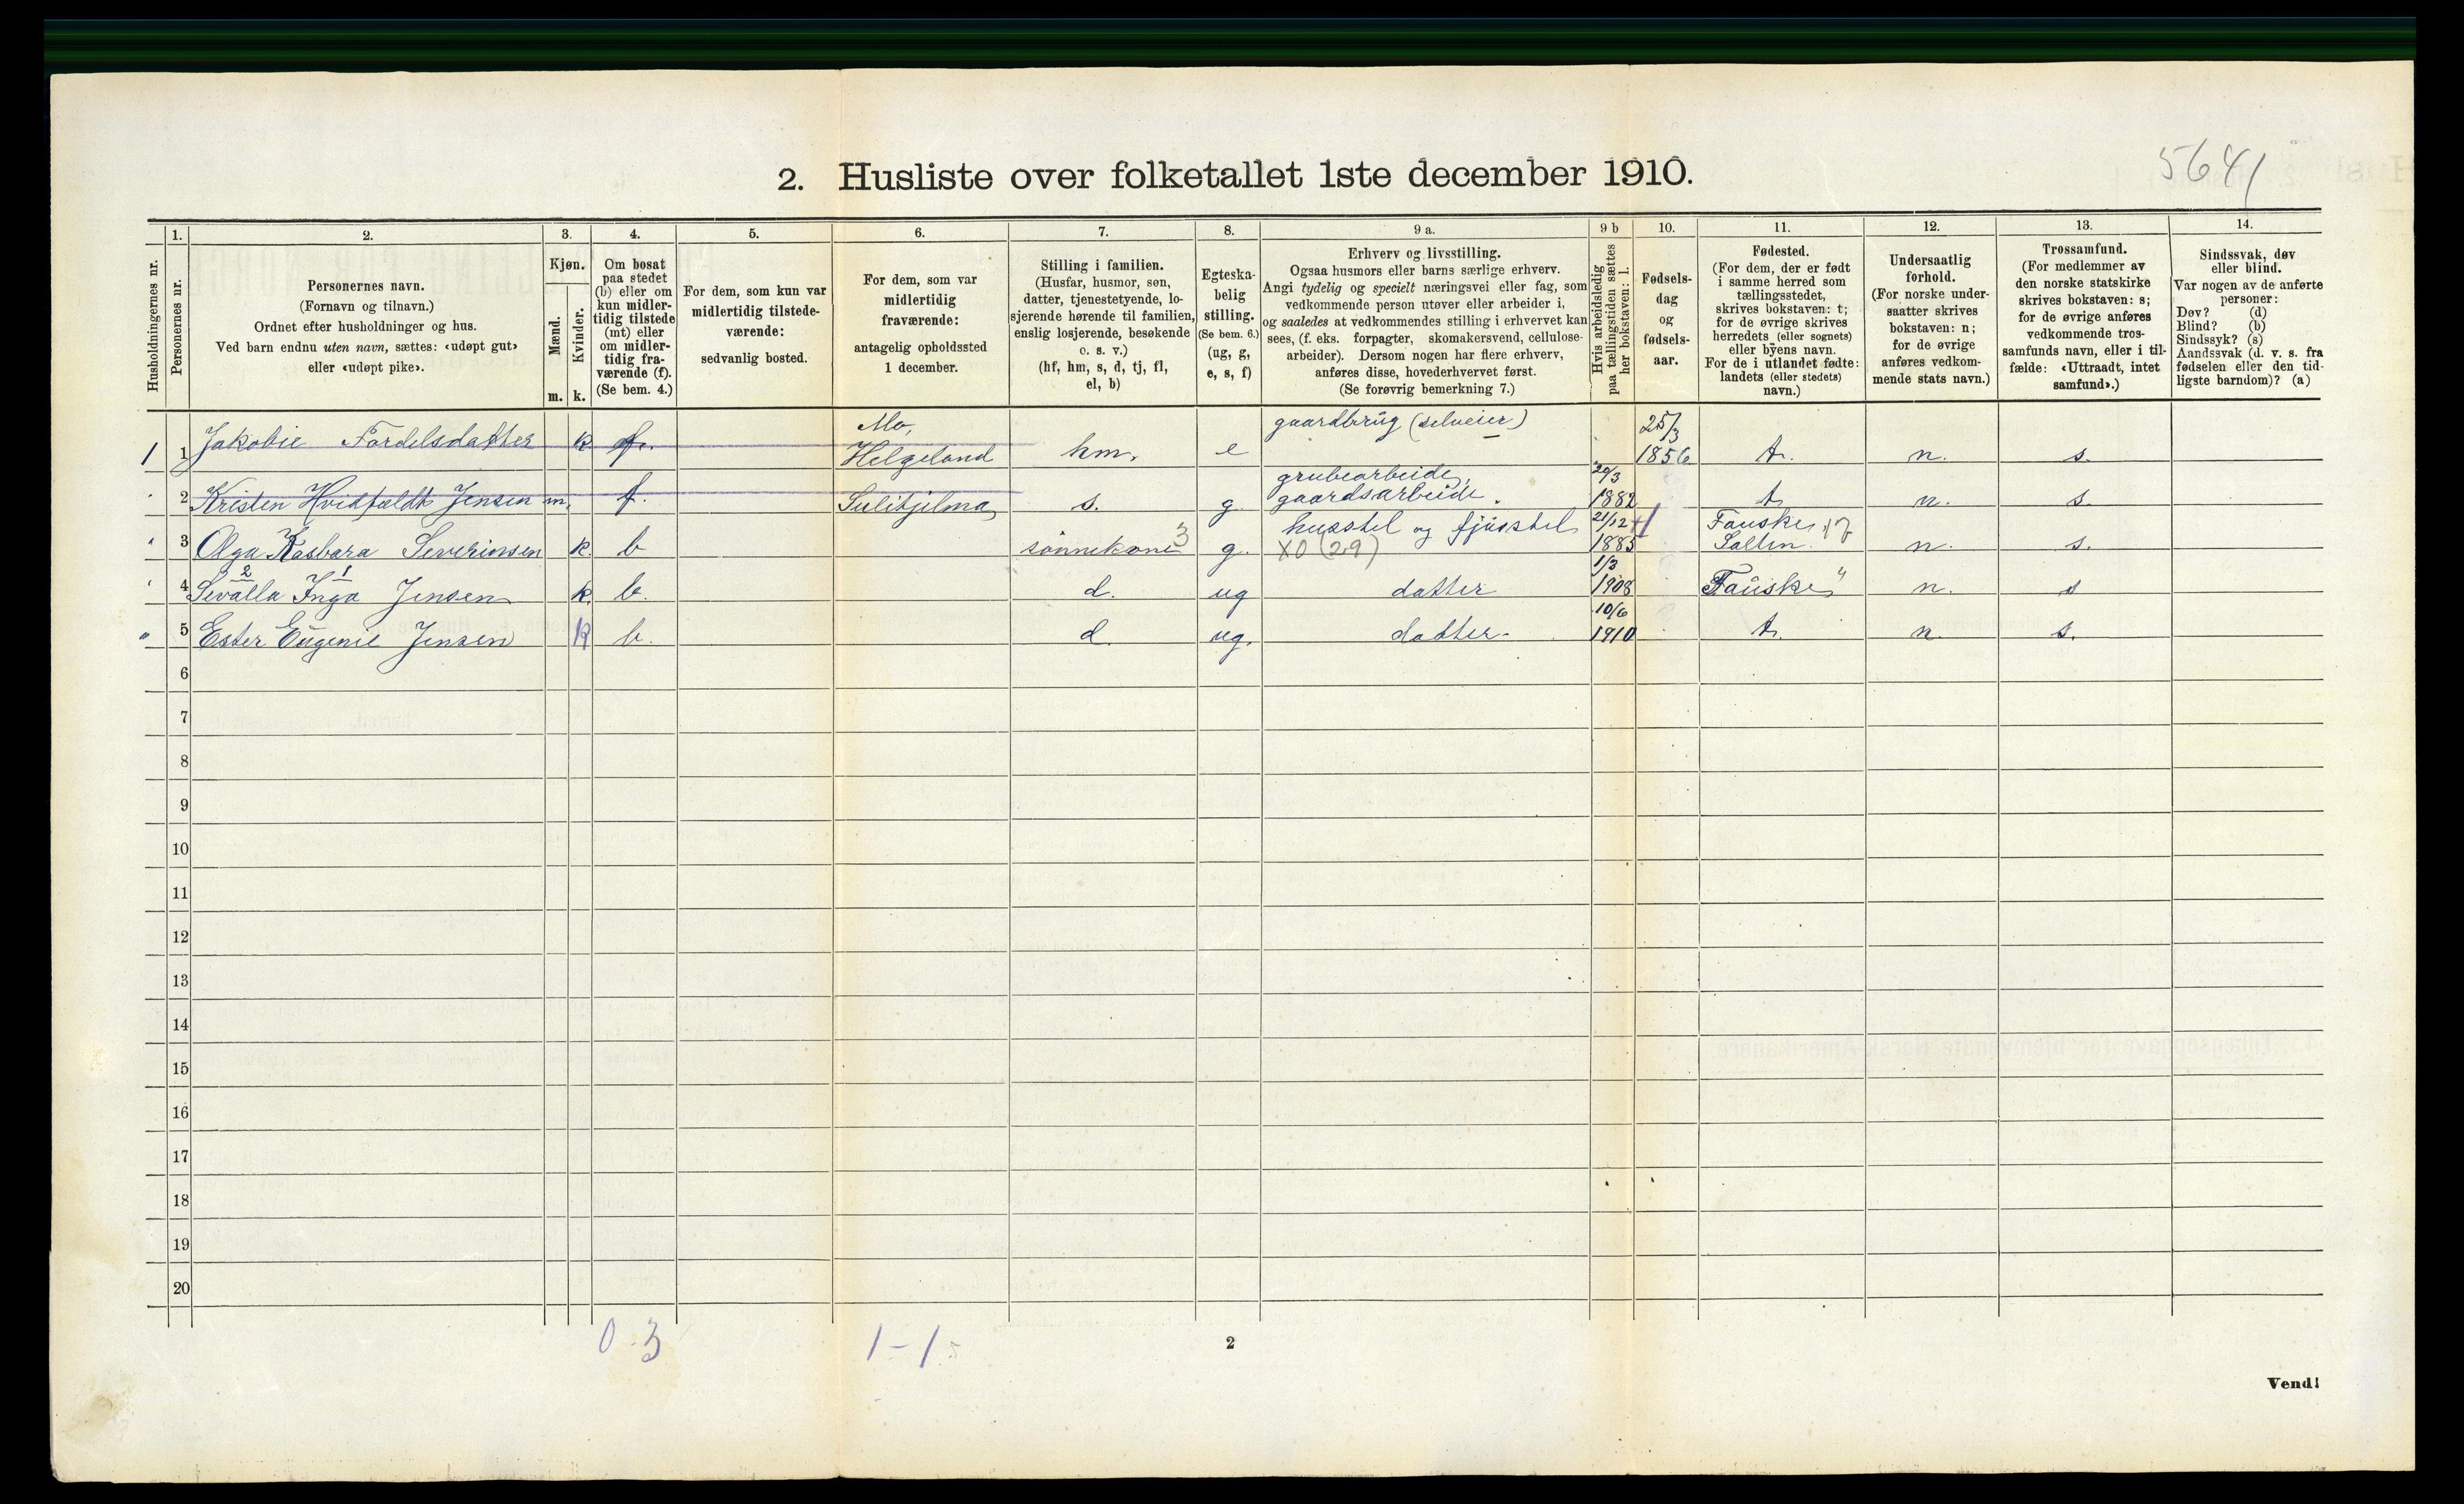 5641
2. Husliste over folketallet 1ste december 1910.
Husholdningernes nr.
1.
Personernes nr.
2.
Personernes navn.
(Fornavn og tilnavn.)
Ordnet efter husholdninger og hus.
Ved barn endnu uten navn, sættes: «udøpt gut»
eller «udøpt pike».
3.
Kjøn.
Mænd.
Kvinder.
m. k.
4.
Om bosat
paa stedet
(b) eller om
kun midler-
tidig tilstede
(mt) eller
om midler-
tidig fra-
værende (f).
(Se bem. 4.)
5.
For dem, som kun var
midlertidig tilstede-
værende:
sedvanlig bosted.
6.
For dem, som var
midlertidig
fraværende:
antagelig opholdssted
1 december.
7.
Stilling i familien.
(Husfar, husmor, søn,
datter, tjenestetyende, lo-
sjerende hørende til familien,
enslig losjerende, besøkende
o. s. v.)
(hf, hm, s, d, tj, fl,
el, b)
8.
Egteska-
belig
stilling.
(Se bem. 6.)
(ug, g,
e, s, f)
9 a.
Erhverv og livsstilling.
Ogsaa husmors eller barns særlige erhverv.
Angi tydelig og specielt næringsvei eller fag, som
vedkommende person utøver eller arbeider i,
og saaledes at vedkommendes stilling i erhvervet kan
sees, (f. eks. forpagter, skomakersvend, cellulose-
arbeider). Dersom nogen har flere erhverv,
anføres disse, hovederhvervet først.
(Se forøvrig bemerkning 7.)
9 b
Hvis arbeidsledig
paa tællingstiden sættes
her bokstaven: l.
10.
Fødsels-
dag
og
fødsels-
aar.
11.
Fødested.
(For dem, der er født
i samme herred som
tællingsstedet,
skrives bokstaven: t;
for de øvrige skrives
herredets (eller sognets)
eller byens navn.
For de i utlandet fødte:
landets (eller stedets)
navn.)
12.
Undersaatlig
forhold.
(For norske under-
saatter skrives
bokstaven: n;
for de øvrige
anføres vedkom-
mende stats navn.)
13.
Trossamfund.
(For medlemmer av
den norske statskirke
skrives bokstaven: s;
for de øvrige anføres
vedkommende tros-
samfunds navn, eller i til-
fælde: «Uttraadt, intet
samfund».)
14.
Sindssvak, døv
eller blind.
Var nogen av de anførte
personer:
Døv? (d)
Blind? (b)
Sindssyk? (s)
Aandssvak (d. v. s. fra
fødselen eller den tid-
ligste barndom)? (a)
Mo, gaardbrug (selveier) 25/3
1 1 Jakobie Fordelsdatter k f. Helgeland hm. e 1856 t. n. s.
grubearbeide, 20/3
" 2 Kristen Hvidfældt Jensen m. f. Sulitjelma s. g gaardsarbeide. 1882 t n. s.
husstel og fjøsstel 21/12 Fauske
" 3 Olga Kasbara Severinsen k. b sønnekone 3 g. XO (29) 1885 Salten n. s.
2 1 1/3
" 4 Sevalla Inga Jensen k. b. d. ug datter 1908 Fauske " n. s
10/6
" 5 Ester Eugenie Jensen k b. d. ug. datter. 1910 t. n. s.
6
7
8
9
10
11
12
13
14
15
16
17
18
19
20
0-3 1-1
2
Vend!